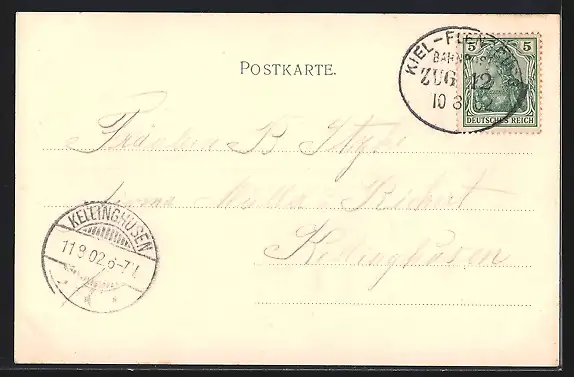 POSTKARTE.
KIEL-FLENSBURG
BAHNPOST
ZUG 12
10 8 02
5 5
DEUTSCHES REICH
Fräulein B
Firma Müller & Richert
Kellinghusen
KELLINGHUSEN
11 8 02 6-7 N.